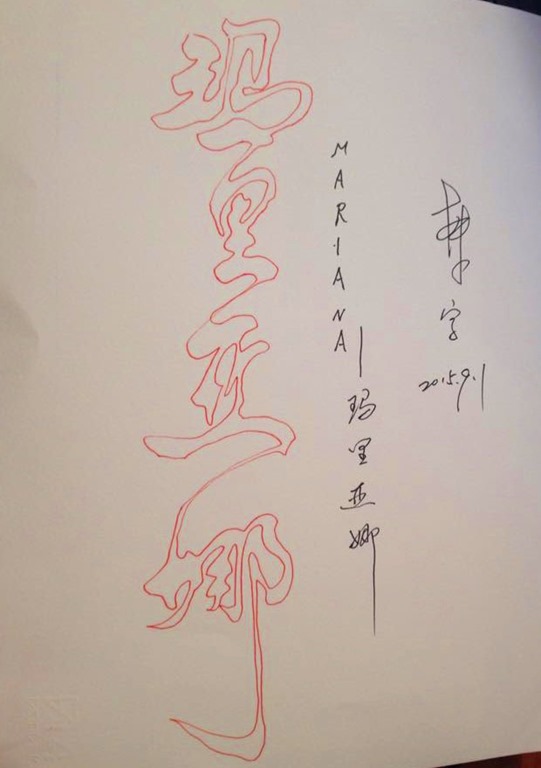 玛里亚娜
MARIANA—玛里亚娜
字
2015.9.1